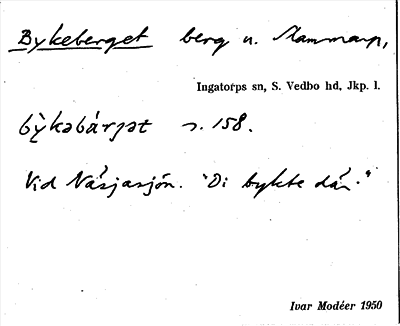 Bykeberget berg n. Stammarp,
Ingatorps sn, S. Vedbo hd, Jkp. l.
by̍kəbárjət s. 158.
Vid Näsjasjön. "Di bykte där."
Ivar Modéer 1950